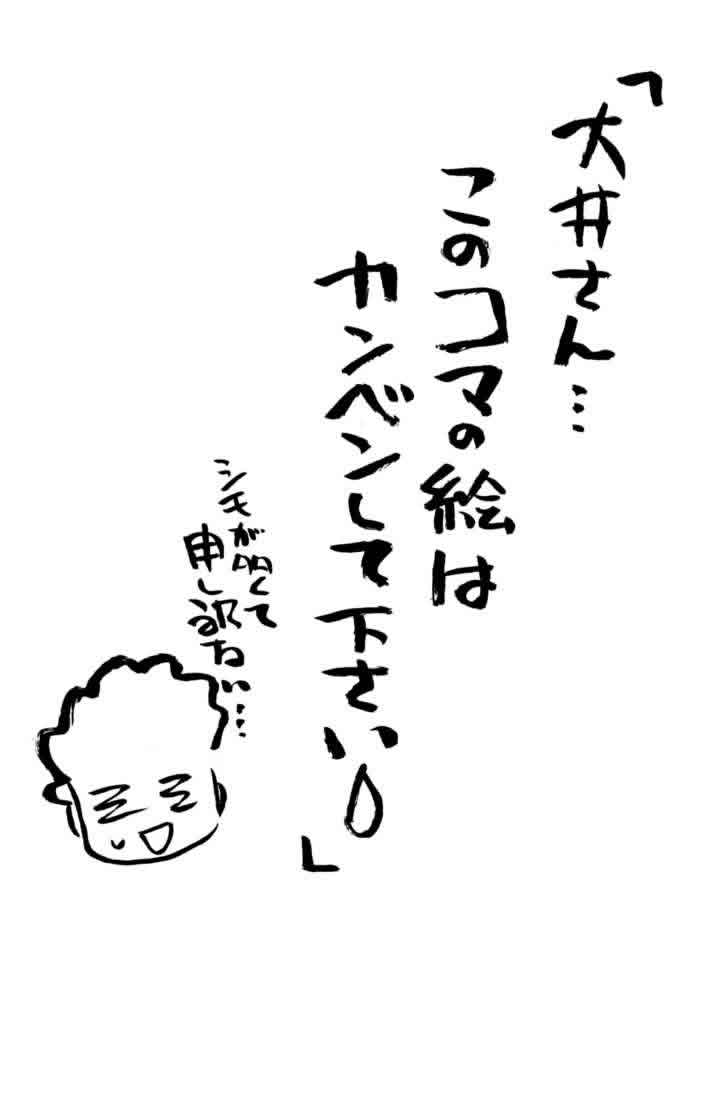 「大井さん…
このコマの絵は
カンベンして下さい」
シモが多くて
申し訳ない…